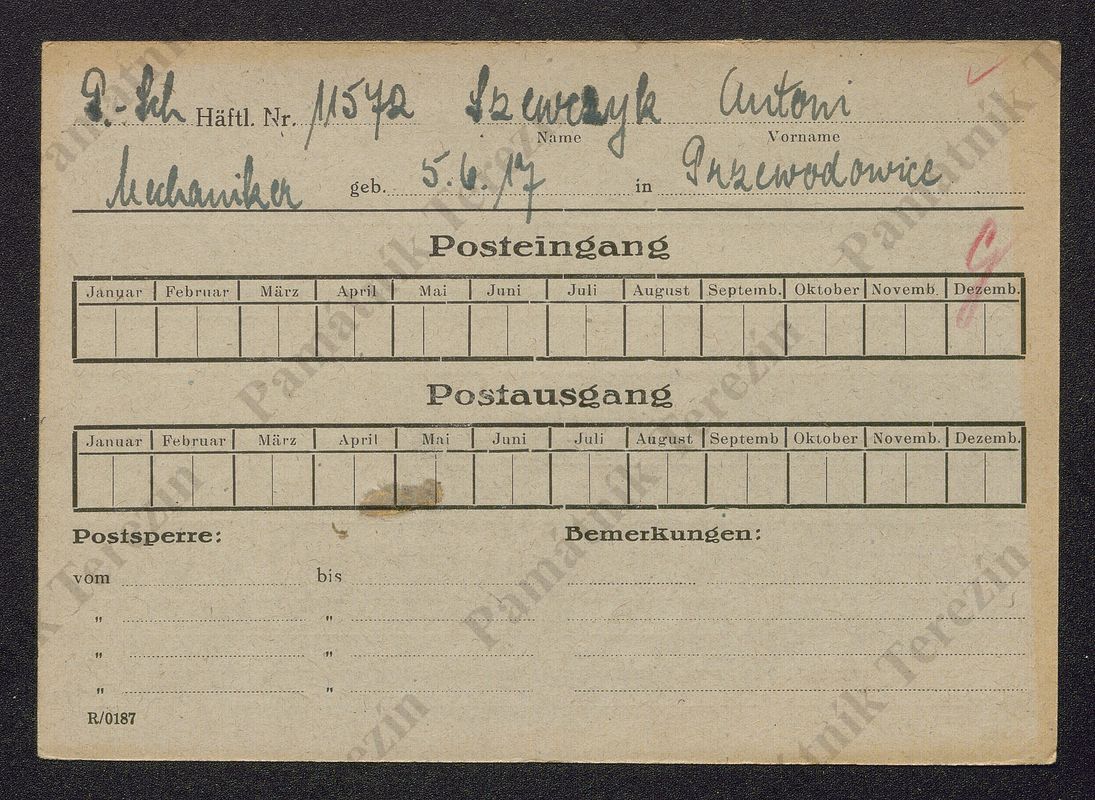 P.-Sch Häftl. Nr. 11572 Szewczyk Antoni
Name Vorname
Mechaniker geb. 5.6.17 in Przewodowice
Posteingang
Januar Februar März April Mai Juni Juli August Septemb. Oktober Novemb. Dezemb.
Postausgang
Januar Februar März April Mai Juni Juli August Septemb Oktober Novemb. Dezemb.
Postsperre: Bemerkungen:
vom bis
" "
" "
" "
R/0187
Památník Terezín